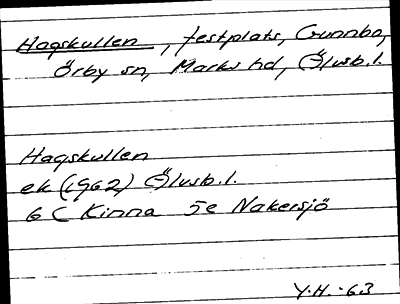 Hagskullen, festplats, Gunnbo,
Örby sn, Marks hd, Älvsb.l.
Hagskullen
ek (1962) Älvsb.l.
6 C Kinna 5e Nakersjö
Y.H. -63